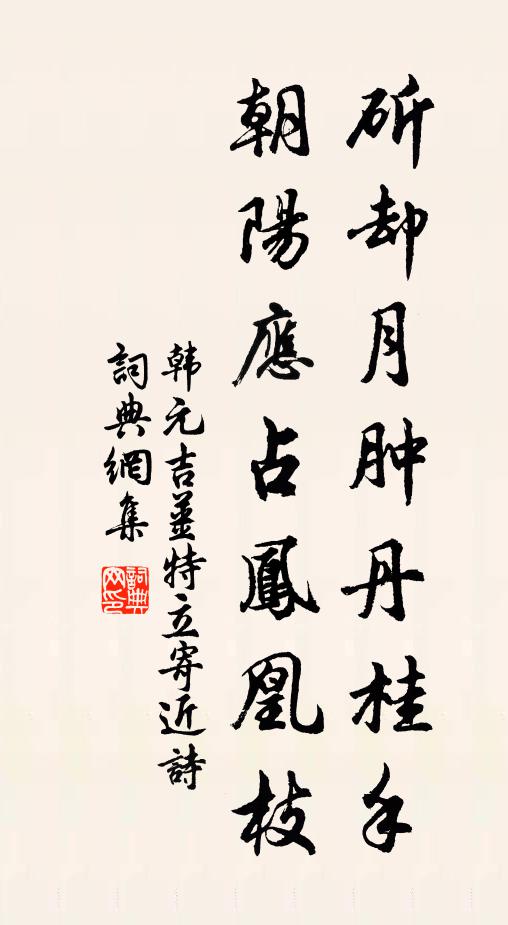 斫却月肿丹桂手
朝陽應占鳳凰枝
韩元吉薑特立寄近詩
詞典網集
詞典
网印